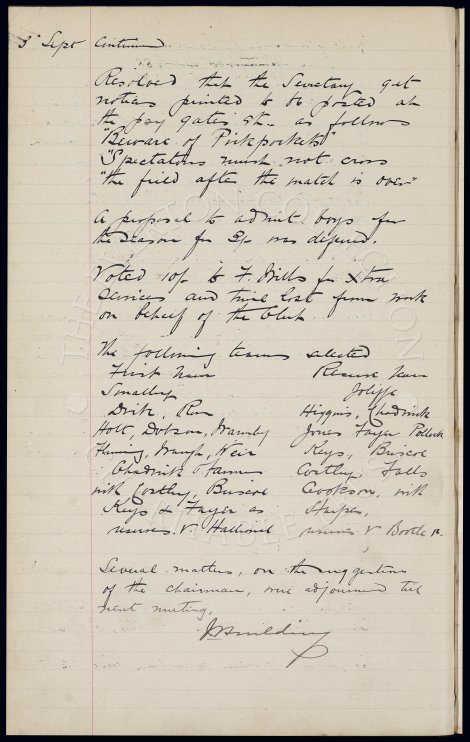 3rd Sept Continued
Resolved that the Secretary get
notices printed to be posted at
the pay gates &c. as follows
"Beware of Pickpockets"
"Spectators must not cross
"the field after the match is over"
A proposal to admit boys for
the season for 2/- was deferred.
Voted 10/- to F. Wills for Xtra
services and time lost from work
on behalf of the Club.
The following teams selected
First team Reserve team
Smalley Joliffe
Dick, Ross Higgins, Chadwick
Holt, Dobson, Jones Fayer Pollock
Fleming, Waugh, Weir Keys, Briscoe
Chadwick Farmer Costley, Falls
with Costley, Briscoe Cookson, with
Keys & Fayer as Harper,
reserves. V Halliwell reserves V Bootle R.
Several matters, on the suggestion
of the chairman, were adjourned till
next meeting.